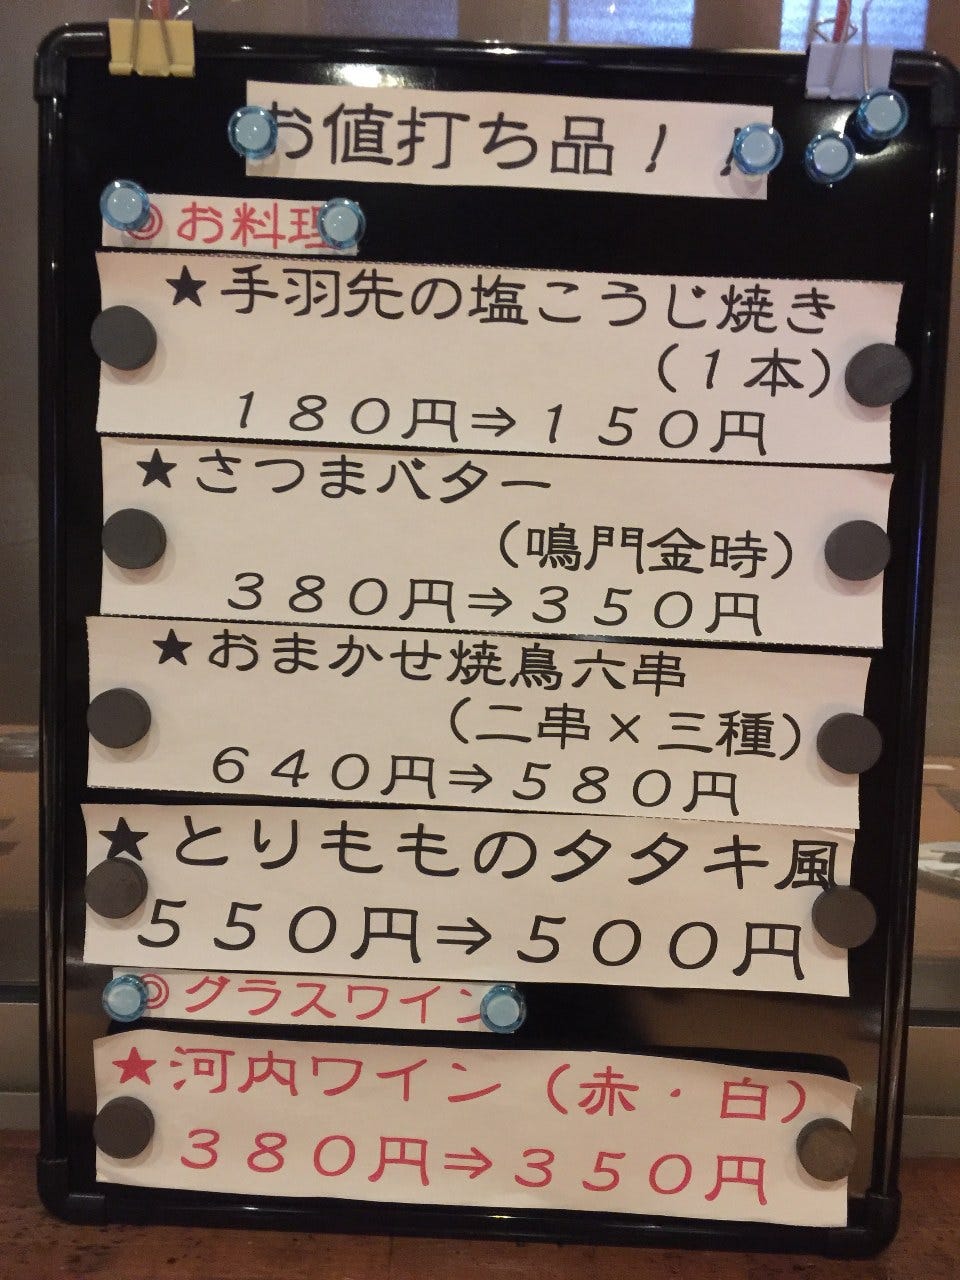 お値打ち品！！
◎お料理
★手羽先の塩こうじ焼き
（１本）
１８０円⇒１５０円
★さつまバター
（鳴門金時）
３８０円⇒３５０円
★おまかせ焼鳥六串
（二串×三種）
６４０円⇒５８０円
★とりもものタタキ風
５５０円⇒５００円
◎グラスワイン
★河内ワイン（赤・白）
３８０円⇒３５０円